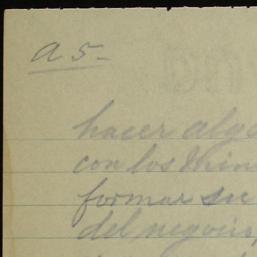 a 5-
hacer alge
con los
formar su
del negocio,